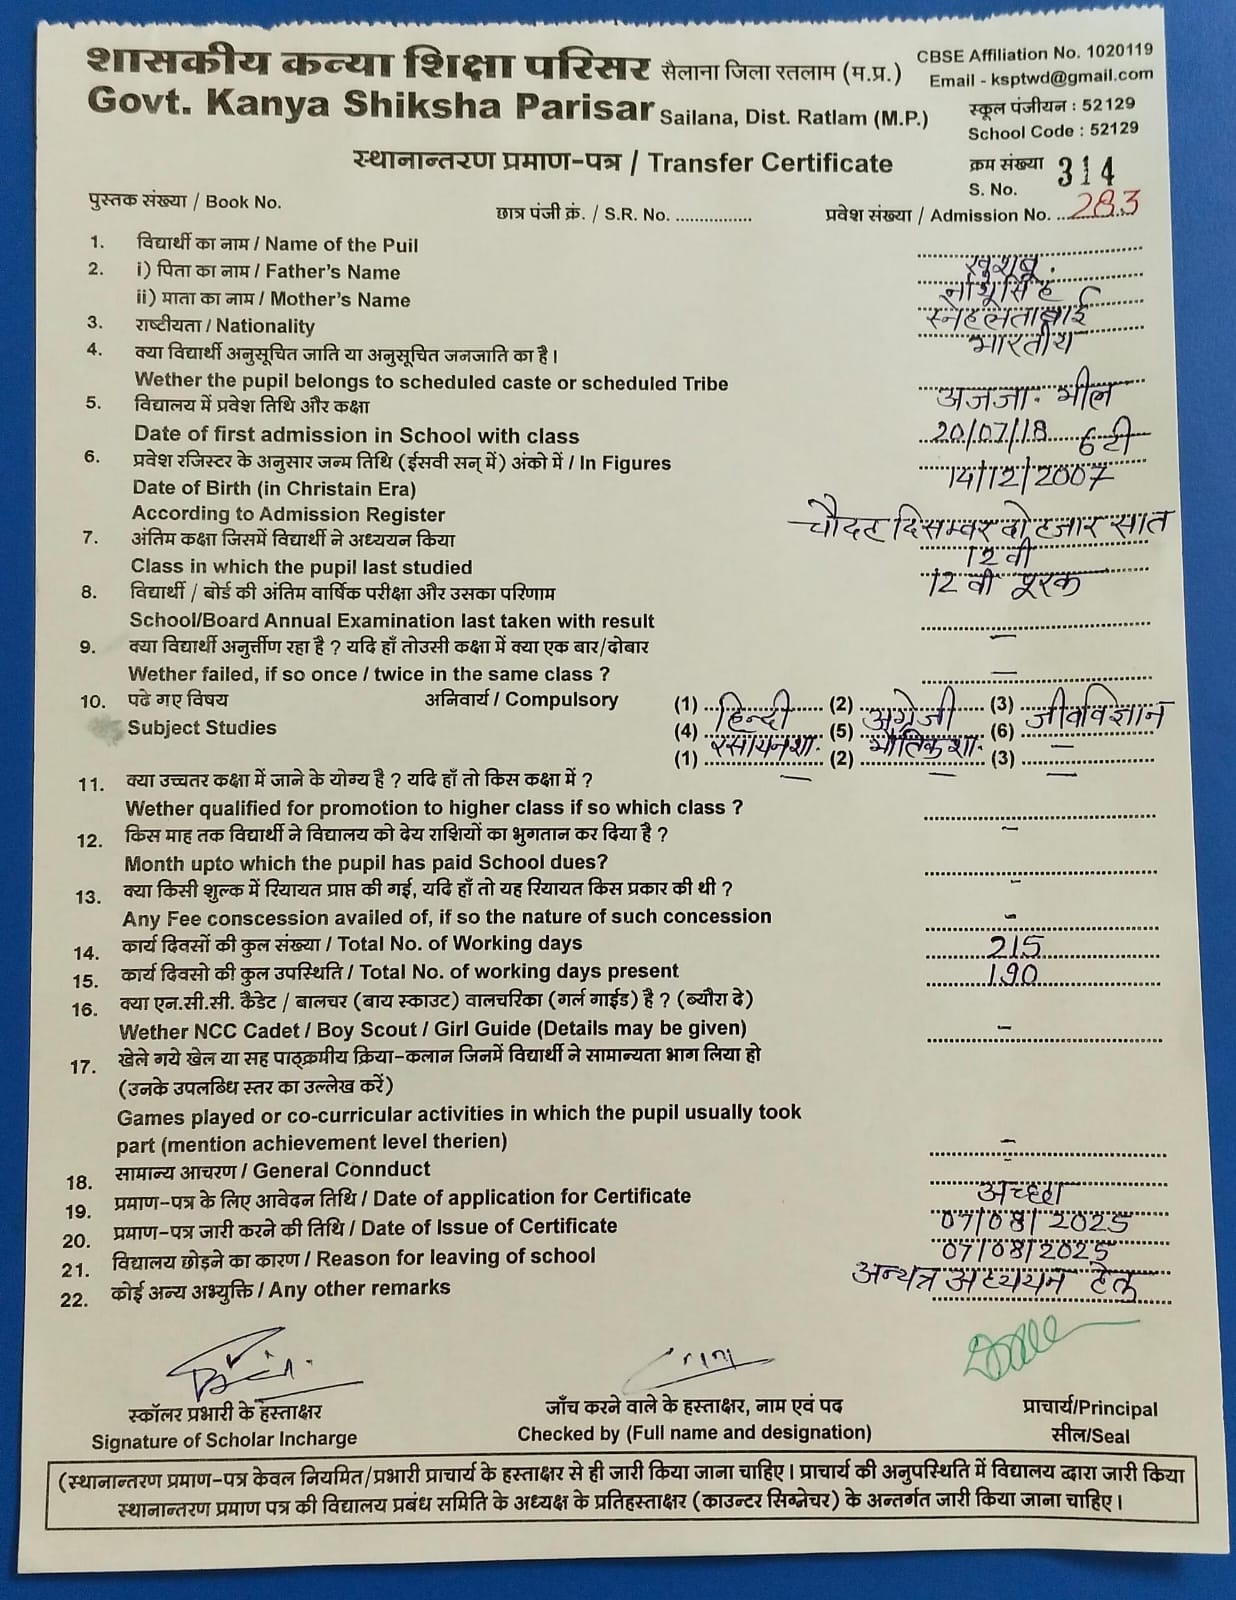 शासकीय कन्या शिक्षा परिसर सैलाना जिला रतलाम (म.प्र.)
CBSE Affiliation No. 1020119
Govt. Kanya Shiksha Parisar Sailana, Dist. Ratlam (M.P.)
Email - ksptwd@gmail.com
स्कूल पंजीयन : 52129
School Code : 52129
स्थानान्तरण प्रमाण-पत्र / Transfer Certificate
क्रम संख्या
S. No. 314
पुस्तक संख्या / Book No. छात्र पंजी क्रं. / S.R. No. ............... प्रवेश संख्या / Admission No. 283
1. विद्यार्थी का नाम / Name of the Puil खुशबू.
2. i) पिता का नाम / Father's Name नाथूसिंह
ii) माता का नाम / Mother's Name स्नेहलताबाई
3. राष्टीयता / Nationality भारतीय
4. क्या विद्यार्थी अनुसूचित जाति या अनुसूचित जनजाति का है।
Wether the pupil belongs to scheduled caste or scheduled Tribe अजजा. भील
5. विद्यालय में प्रवेश तिथि और कक्षा
Date of first admission in School with class 20/07/18 6टी
6. प्रवेश रजिस्टर के अनुसार जन्म तिथि (ईसवी सन् में) अंको में / In Figures 14/12/2007
Date of Birth (in Christain Era)
According to Admission Register चौदह दिसम्बर दो हजार सात
7. अंतिम कक्षा जिसमें विद्यार्थी ने अध्ययन किया
Class in which the pupil last studied 12 वी
8. विद्यार्थी / बोर्ड की अंतिम वार्षिक परीक्षा और उसका परिणाम 12 वी पूरक
School/Board Annual Examination last taken with result
9. क्या विद्यार्थी अनुर्त्तीण रहा है ? यदि हाँ तोउसी कक्षा में क्या एक बार/दोबार —
Wether failed, if so once / twice in the same class ? —
10. पढे गए विषय अनिवार्य / Compulsory (1) हिन्दी (2) अंग्रेजी (3) जीवविज्ञान
Subject Studies (4) रसायनशा. (5) भौतिकशा. (6) —
(1) — (2) — (3) —
11. क्या उच्चतर कक्षा में जाने के योग्य है ? यदि हाँ तो किस कक्षा में ?
Wether qualified for promotion to higher class if so which class ?
12. किस माह तक विद्यार्थी ने विद्यालय को देय राशियों का भुगतान कर दिया है ? –
Month upto which the pupil has paid School dues?
13. क्या किसी शुल्क में रियायत प्राप्त की गई, यदि हाँ तो यह रियायत किस प्रकार की थी ? -
Any Fee conscession availed of, if so the nature of such concession -
14. कार्य दिवसों की कुल संख्या / Total No. of Working days 215
15. कार्य दिवसो की कुल उपस्थिति / Total No. of working days present 190
16. क्या एन.सी.सी. कैडेट / बालचर (बाय स्काउट) वालचरिका (गर्ल गाईड) है ? (ब्यौरा दे)
Wether NCC Cadet / Boy Scout / Girl Guide (Details may be given) –
17. खेले गये खेल या सह पाठ्क्रमीय क्रिया-कलान जिनमें विद्यार्थी ने सामान्यता भाग लिया हो
(उनके उपलब्धि स्तर का उल्लेख करें)
Games played or co-curricular activities in which the pupil usually took
part (mention achievement level therien) –
18. सामान्य आचरण / General Connduct अच्छा
19. प्रमाण-पत्र के लिए आवेदन तिथि / Date of application for Certificate 07/08/2025
20. प्रमाण-पत्र जारी करने की तिथि / Date of Issue of Certificate 07/08/2025
21. विद्यालय छोड़ने का कारण / Reason for leaving of school अन्यत्र अध्ययन हेतु
22. कोई अन्य अभ्युक्ति / Any other remarks
स्कॉलर प्रभारी के हस्ताक्षर जाँच करने वाले के हस्ताक्षर, नाम एवं पद प्राचार्य/Principal
Signature of Scholar Incharge Checked by (Full name and designation) सील/Seal
(स्थानान्तरण प्रमाण-पत्र केवल नियमित/प्रभारी प्राचार्य के हस्ताक्षर से ही जारी किया जाना चाहिए। प्राचार्य की अनुपस्थिति में विद्यालय द्वारा जारी किया
स्थानान्तरण प्रमाण पत्र की विद्यालय प्रबंध समिति के अध्यक्ष के प्रतिहस्ताक्षर (काउन्टर सिग्नेचर) के अन्तर्गत जारी किया जाना चाहिए।